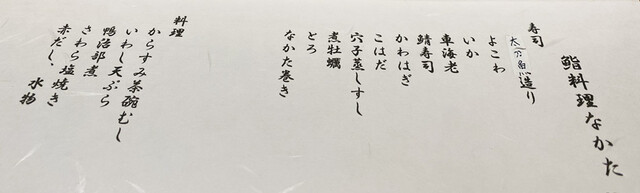 鮨料理なかた
寿司
造り
よこわ
いか
車海老
鯖寿司
かわはぎ
こはだ
穴子蒸しすし
煮牡蠣
とろ
なかた巻き
料理
からすみ茶碗むし
いわし天ぷら
鴨治部煮
さわら塩焼き
赤だし、水物